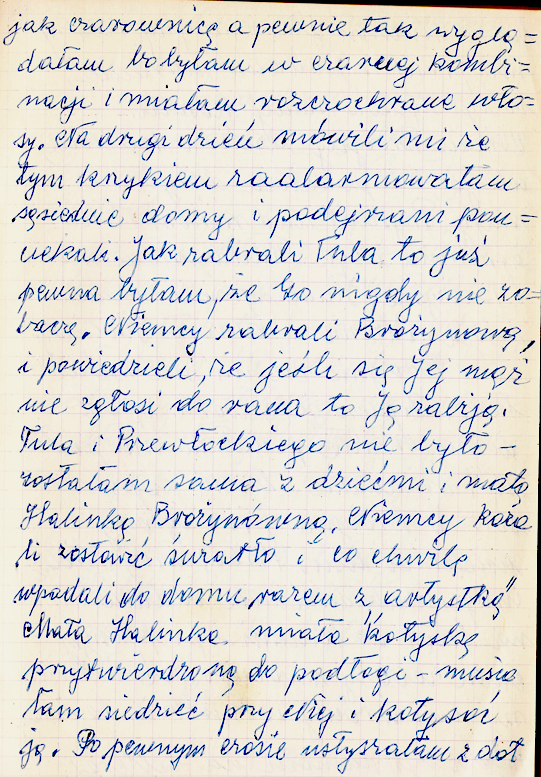 jak czarownicę a pewnie tak wyglą=
dałam bo byłam w czarnej kombi=
nacji i miałam rozczochrane wło=
sy. Na drugi dzień mówili mi że
tym krzykiem zaalarmowałam
sąsiednie domy i podejrzani pou=
ciekali. Jak zabrali Tula to już
pewna byłam, że Go nigdy nie zo=
baczę. Niemcy zabrali Brożynową,
i powiedzieli, że jeśli się Jej mąż
nie zgłosi do rana to Ją zabiją.
Tula i Przewłockiego nie było –
zostałam sama z dziećmi i małą
Halinką Brożynówną. Niemcy kaza
li zostawić światło i co chwilę
wpadali do domu razem z „artystką"
Mała Halinka miała kołyskę
przytwierdzoną do podłogi – musia
łam siedzieć przy Niej i kołysać
ją. Po pewnym czasie usłyszałam z doł